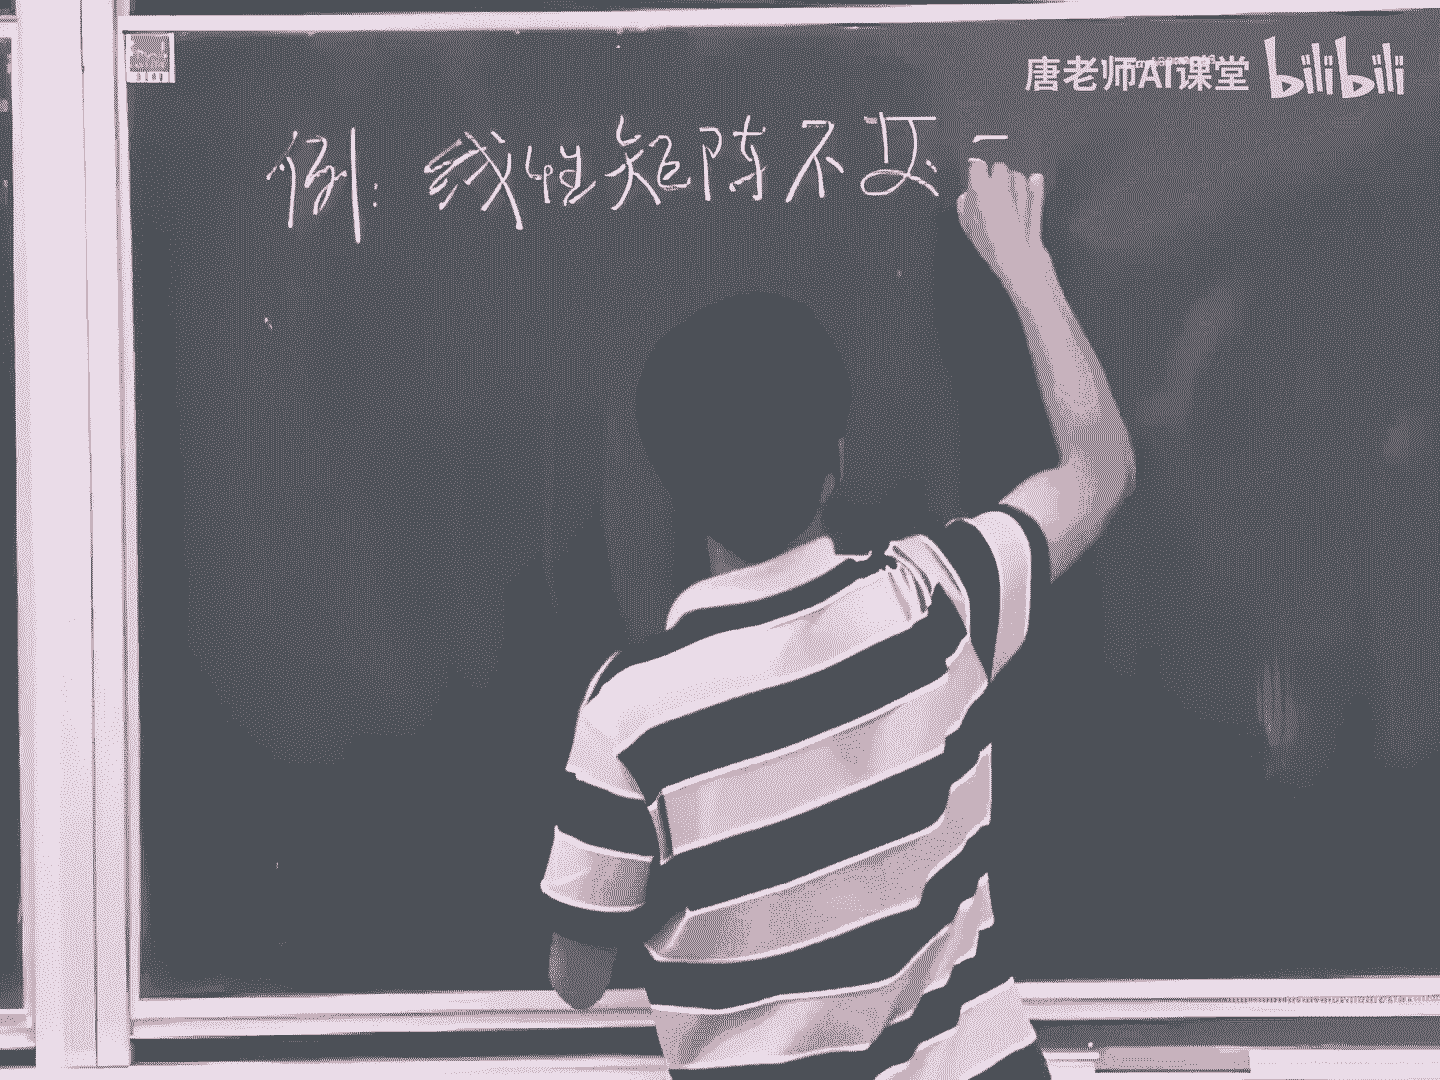 唐老师AI课堂 bilibili
例: 线性矩阵不